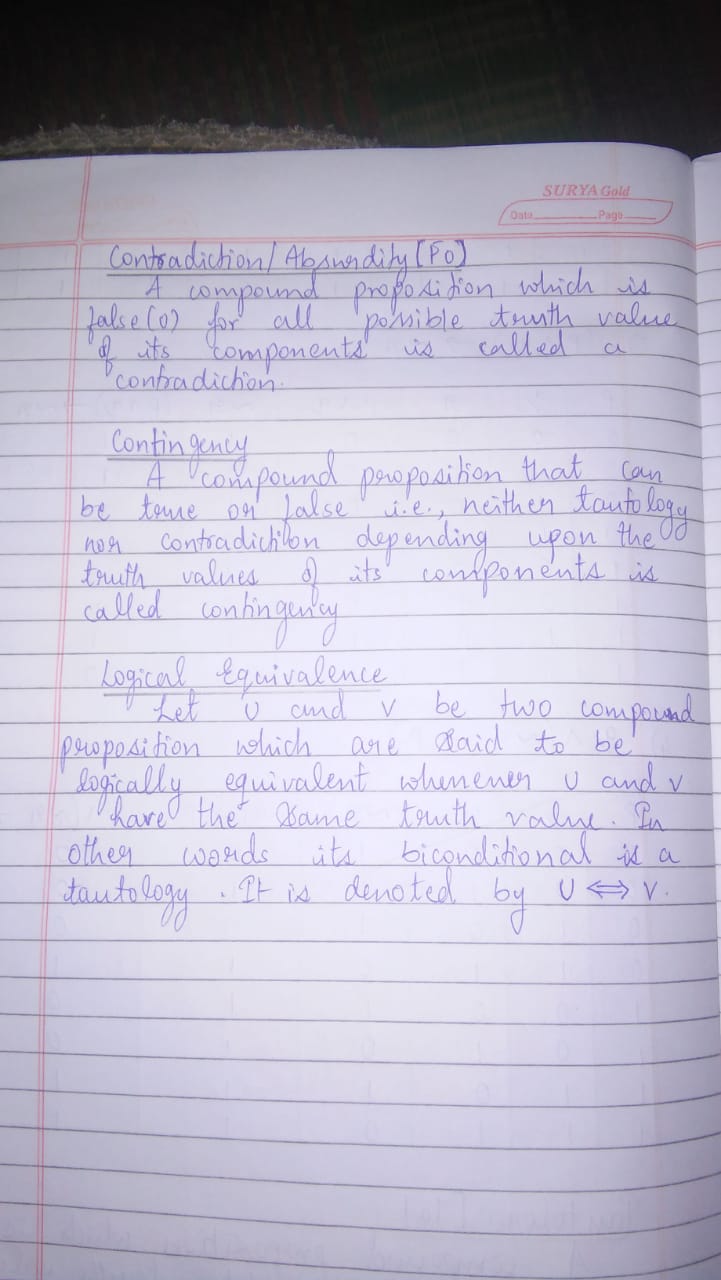 SURYA Gold
Date Page
Contradiction/Absurdity [Fo]
A compound proposition which is
false(0) for all possible truth value
of its components is called a
contradiction.
Contingency
A compound proposition that can
be true or false i.e., neither tautology
nor contradiction depending upon the
truth values of its components is
called contingency
Logical Equivalence
Let U and V be two compound
proposition which are said to be
logically equivalent whenever U and V
have the same truth value. In
other words its biconditional is a
tautology. It is denoted by U ⇔ V.